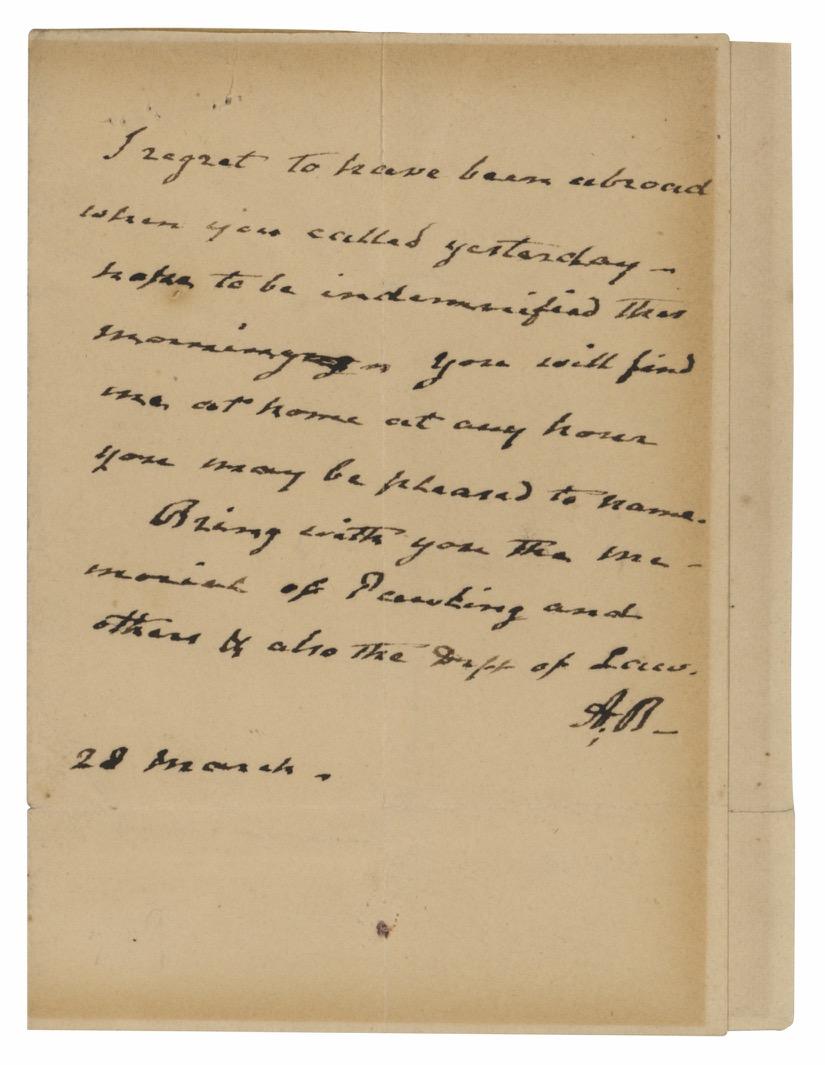 I regret to have been abroad
when you called yesterday –
hope to be indemnified this
morning – You will find
me at home at any hour
you may be pleased to name.
Bring with you the me-
morial of Pawling and
others & also the of Law.
A.B –
28 March .